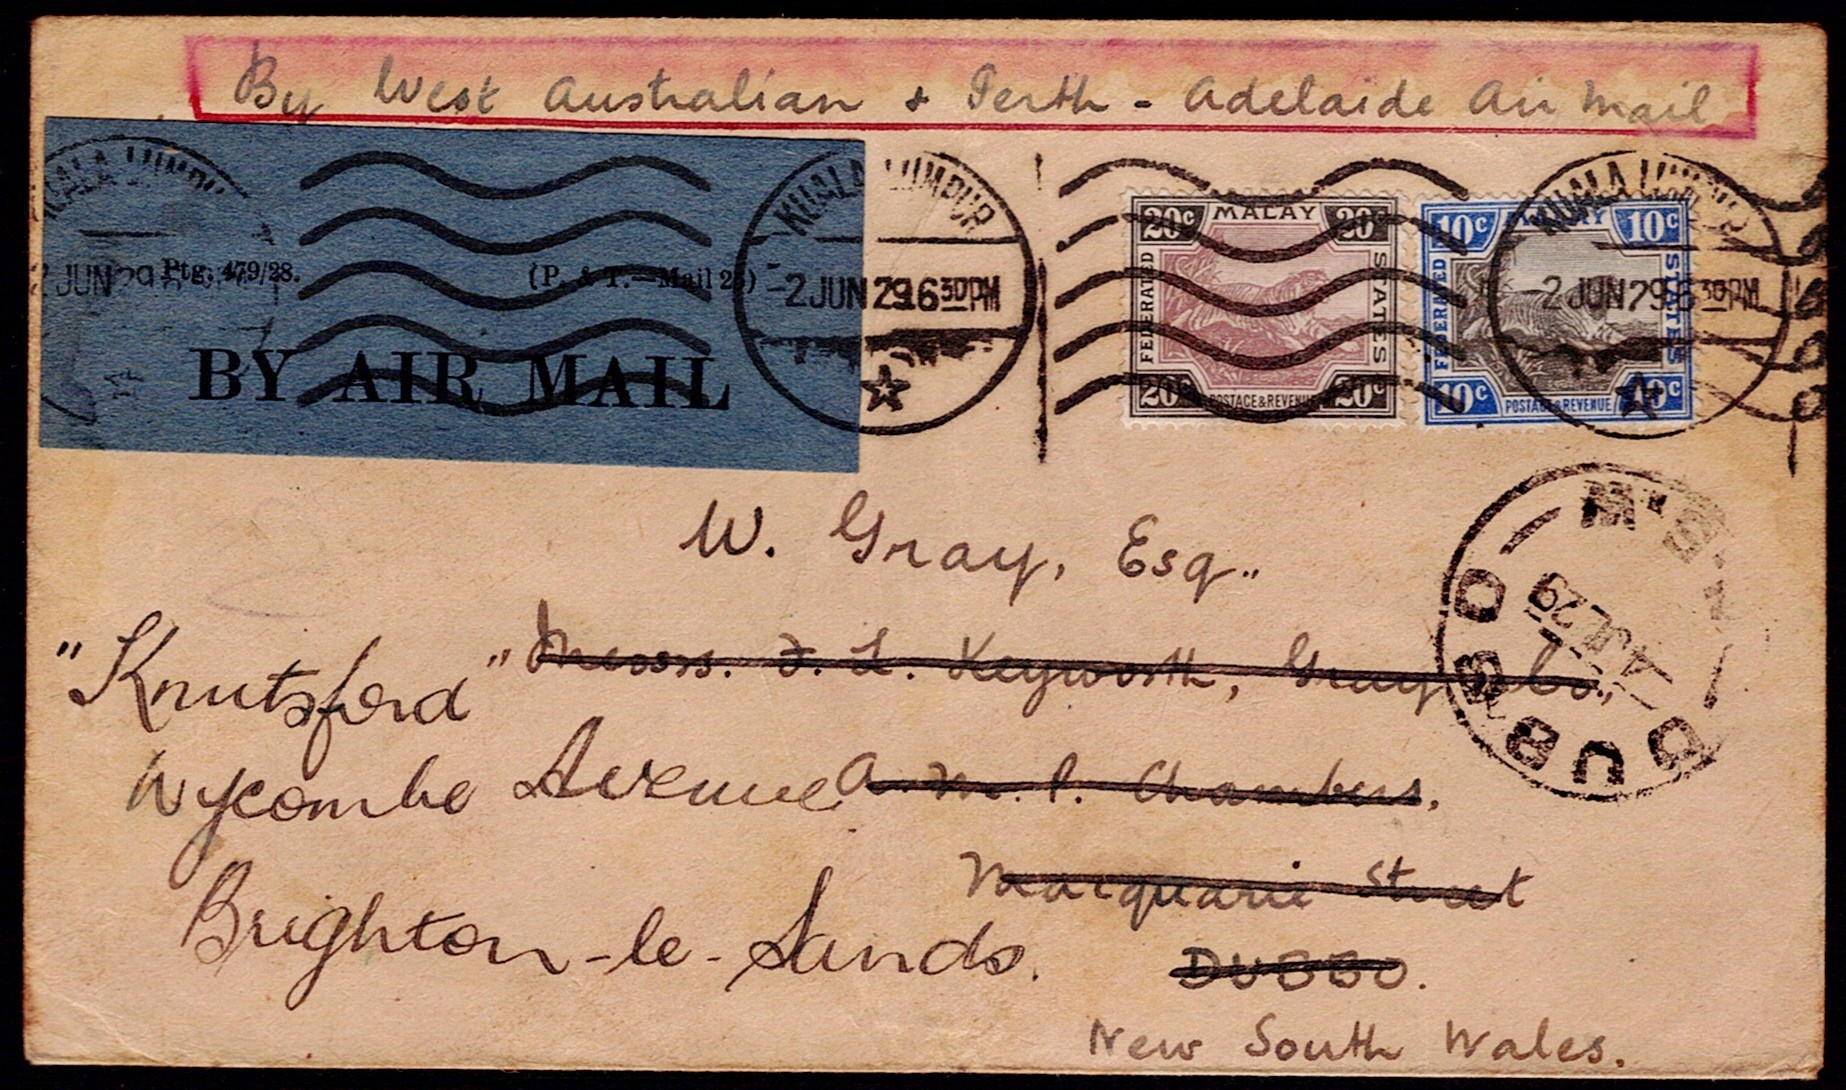 By West Australian & Perth - Adelaide Air Mail
KUALA LUMPUR
2 JUN 29
Ptg. 479/28.
(P. & T.—Mail 25)
BY AIR MAIL
KUALA LUMPUR
-2 JUN 29. 6 30 PM
20c MALAY 20c
FEDERATED
STATES
20c POSTAGE & REVENUE 20c
10c MALAY 10c
FEDERATED
STATES
10c POSTAGE & REVENUE 10c
KUALA LUMPUR
-2 JUN 29. 6 30 PM
W. Gray, Esq.,
Messrs. F. L. Keyworth, Gray & Co.,
A. M. P. Chambers.
Macquarie Street
DUBBO.
New South Wales.
"Knutsford"
Wycombe Avenue
Brighton-le-Sands.
DUBBO
JUL 29